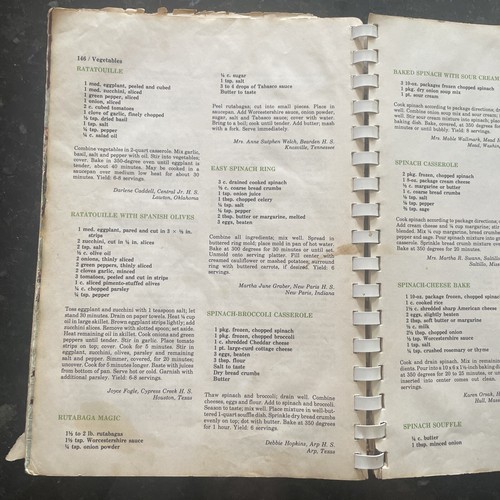 144 / Vegetables
RATATOUILLE
1 med. eggplant, peeled and cubed
1 med. zucchini, sliced
1 green pepper, sliced
1 onion, sliced
2 c. cubed tomatoes
1 clove of garlic, finely chopped
tsp. dried basil
1 tsp. salt
tsp. pepper
c. salad oil
Combine vegetables in 2-quart casserole. Mix garlic,
basil, salt and pepper with oil. Stir into vegetables;
cover. Bake in 350-degree oven until eggplant is
tender, about 40 minutes. May be cooked in a
saucepan over medium low heat for about 30
minutes. Yield: 6-8 servings.
Darlene Caddell, Central Jr. H. S.
Lawton, Oklahoma
RATATOUILLE WITH SPANISH OLIVES
1 med. eggplant, pared and cut in 3 × ½ in.
strips
2 zucchini, cut in ¼ in. slices
2 tsp. salt
½ c. olive oil
2 onions, thinly sliced
2 green peppers, thinly sliced
2 cloves garlic, minced
3 tomatoes, peeled and cut in strips
1 c. sliced pimento-stuffed olives
¼ c. chopped parsley
¼ tsp. pepper
Toss eggplant and zucchini with 1 teaspoon salt; let
stand 30 minutes. Drain on paper towels. Heat ¼ cup
oil in large skillet. Brown eggplant strips lightly; add
zucchini slices. Remove with slotted spoon; set aside.
Heat remaining oil in skillet. Cook onions and green
peppers until tender. Stir in garlic. Place tomato
strips on top, cover. Cook for 5 minutes. Stir in
eggplant, zucchini, olives, parsley and remaining
salt and pepper. Simmer, covered, for 20 minutes;
uncover. Cook for 5 minutes longer. Baste with juices
from bottom of pan. Serve hot or cold. Garnish with
additional parsley. Yield: 6-8 servings.
Joyce Fogle, Cypress Creek H. S.
Houston, Texas
RUTABAGA MAGIC
1½ to 2 lb. rutabagas
1½ tsp. Worcestershire sauce
¼ tsp. onion powder
½ c. sugar
1 tsp. salt
3 to 4 drops of Tabasco sauce
Butter to taste
Peel rutabagas, cut into small pieces. Place in
saucepan. Add Worcestershire sauce, onion powder,
sugar, salt and Tabasco sauce; cover with water.
Bring to a boil; cook until tender. Add butter; mash
with a fork. Serve immediately.
Mrs. Anne Suiphen Welch, Bearden H. S.
Knoxville, Tennessee
EASY SPINACH RING
3 c. drained cooked spinach
c. coarse bread crumbs
1 tsp. onion juice
1 tbsp. chopped celery
tsp. salt
tsp. pepper
2 tbsp. butter or margarine, melted
2 eggs, beaten
Combine all ingredients; mix well. Spread to
buttered ring mold; place mold in pan of hot water.
Bake at 300 degrees for 30 minutes or until set.
Unmold onto serving platter. Fill center with
creamed cauliflower or mashed potatoes; surround
ring with buttered carrots, if desired. Yield: 6
servings.
Martha June Graber, New Paris H. S.
New Paris, Indiana
SPINACH-BROCCOLI CASSEROLE
1 pkg. frozen, chopped spinach
1 pkg. frozen, chopped broccoli
1 c. shredded Cheddar cheese
1 pt. large-curd cottage cheese
3 eggs, beaten
1 tbsp. flour
Salt to taste
Dry bread crumbs
Butter
Thaw spinach and broccoli; drain well. Combine
cheeses, eggs and flour. Add to spinach and broccoli.
Season to taste; mix well. Place mixture in well-but-
tered 1-quart souffle dish. Sprinkle dry bread crumbs
evenly on top; dot with butter. Bake at 350 degrees
for 1 hour. Yield: 6 servings.
Debbie Hopkins, Arp H. S.
Arp, Texas
BAKED SPINACH WITH SOUR CREAM
3 10-oz. packages frozen chopped spinach
1 pkg. dry onion soup mix
1 pt. sour cream
Cook spinach according to package directions,
well. Combine onion soup mix and sour cream;
well. Stir sour cream mixture into spinach; place
baking dish. Bake, covered, at 350 degrees
minutes or until bubbly. Yield: 8 servings.
Mrs. Mable Wallmark, Mead
Mead, Washin
SPINACH CASSEROLE
2 pkg. frozen, chopped spinach
1 3-oz. package cream cheese
¼ c. margarine or butter
1 c. coarse bread crumbs
tsp. salt
tsp. pepper
tsp. sage
Cook spinach according to package directions,
Add cream cheese and ¼ cup margarine; stir
blended. Mix ¼ cup margarine, bread crumbs
pepper and sage. Pour spinach mixture into
casserole. Sprinkle bread crumb mixture over
Bake at 350 degrees for 20 minutes.
Mrs. Martha R. Swann, Saltillo
Saltillo, Miss
SPINACH-CHEESE BAKE
1 10-oz. package frozen, chopped spinach
1 c. cooked rice
1½ c. shredded sharp American cheese
2 eggs, slightly beaten
2 tbsp. soft butter or margarine
c. milk
2½ tbsp. chopped onion
½ tsp. Worcestershire sauce
1 tsp. salt
¼ tsp. crushed rosemary or thyme
Cook and drain spinach. Mix in remaining
dients. Pour into 10 x 6 x 1½-inch baking
at 350 degrees for 20 to 25 minutes or until
inserted into center comes out clean.
servings.
Karen Greek, H
Hull, Mass
SPINACH SOUFFLE
¼ c. butter
1 tbsp. minced onion